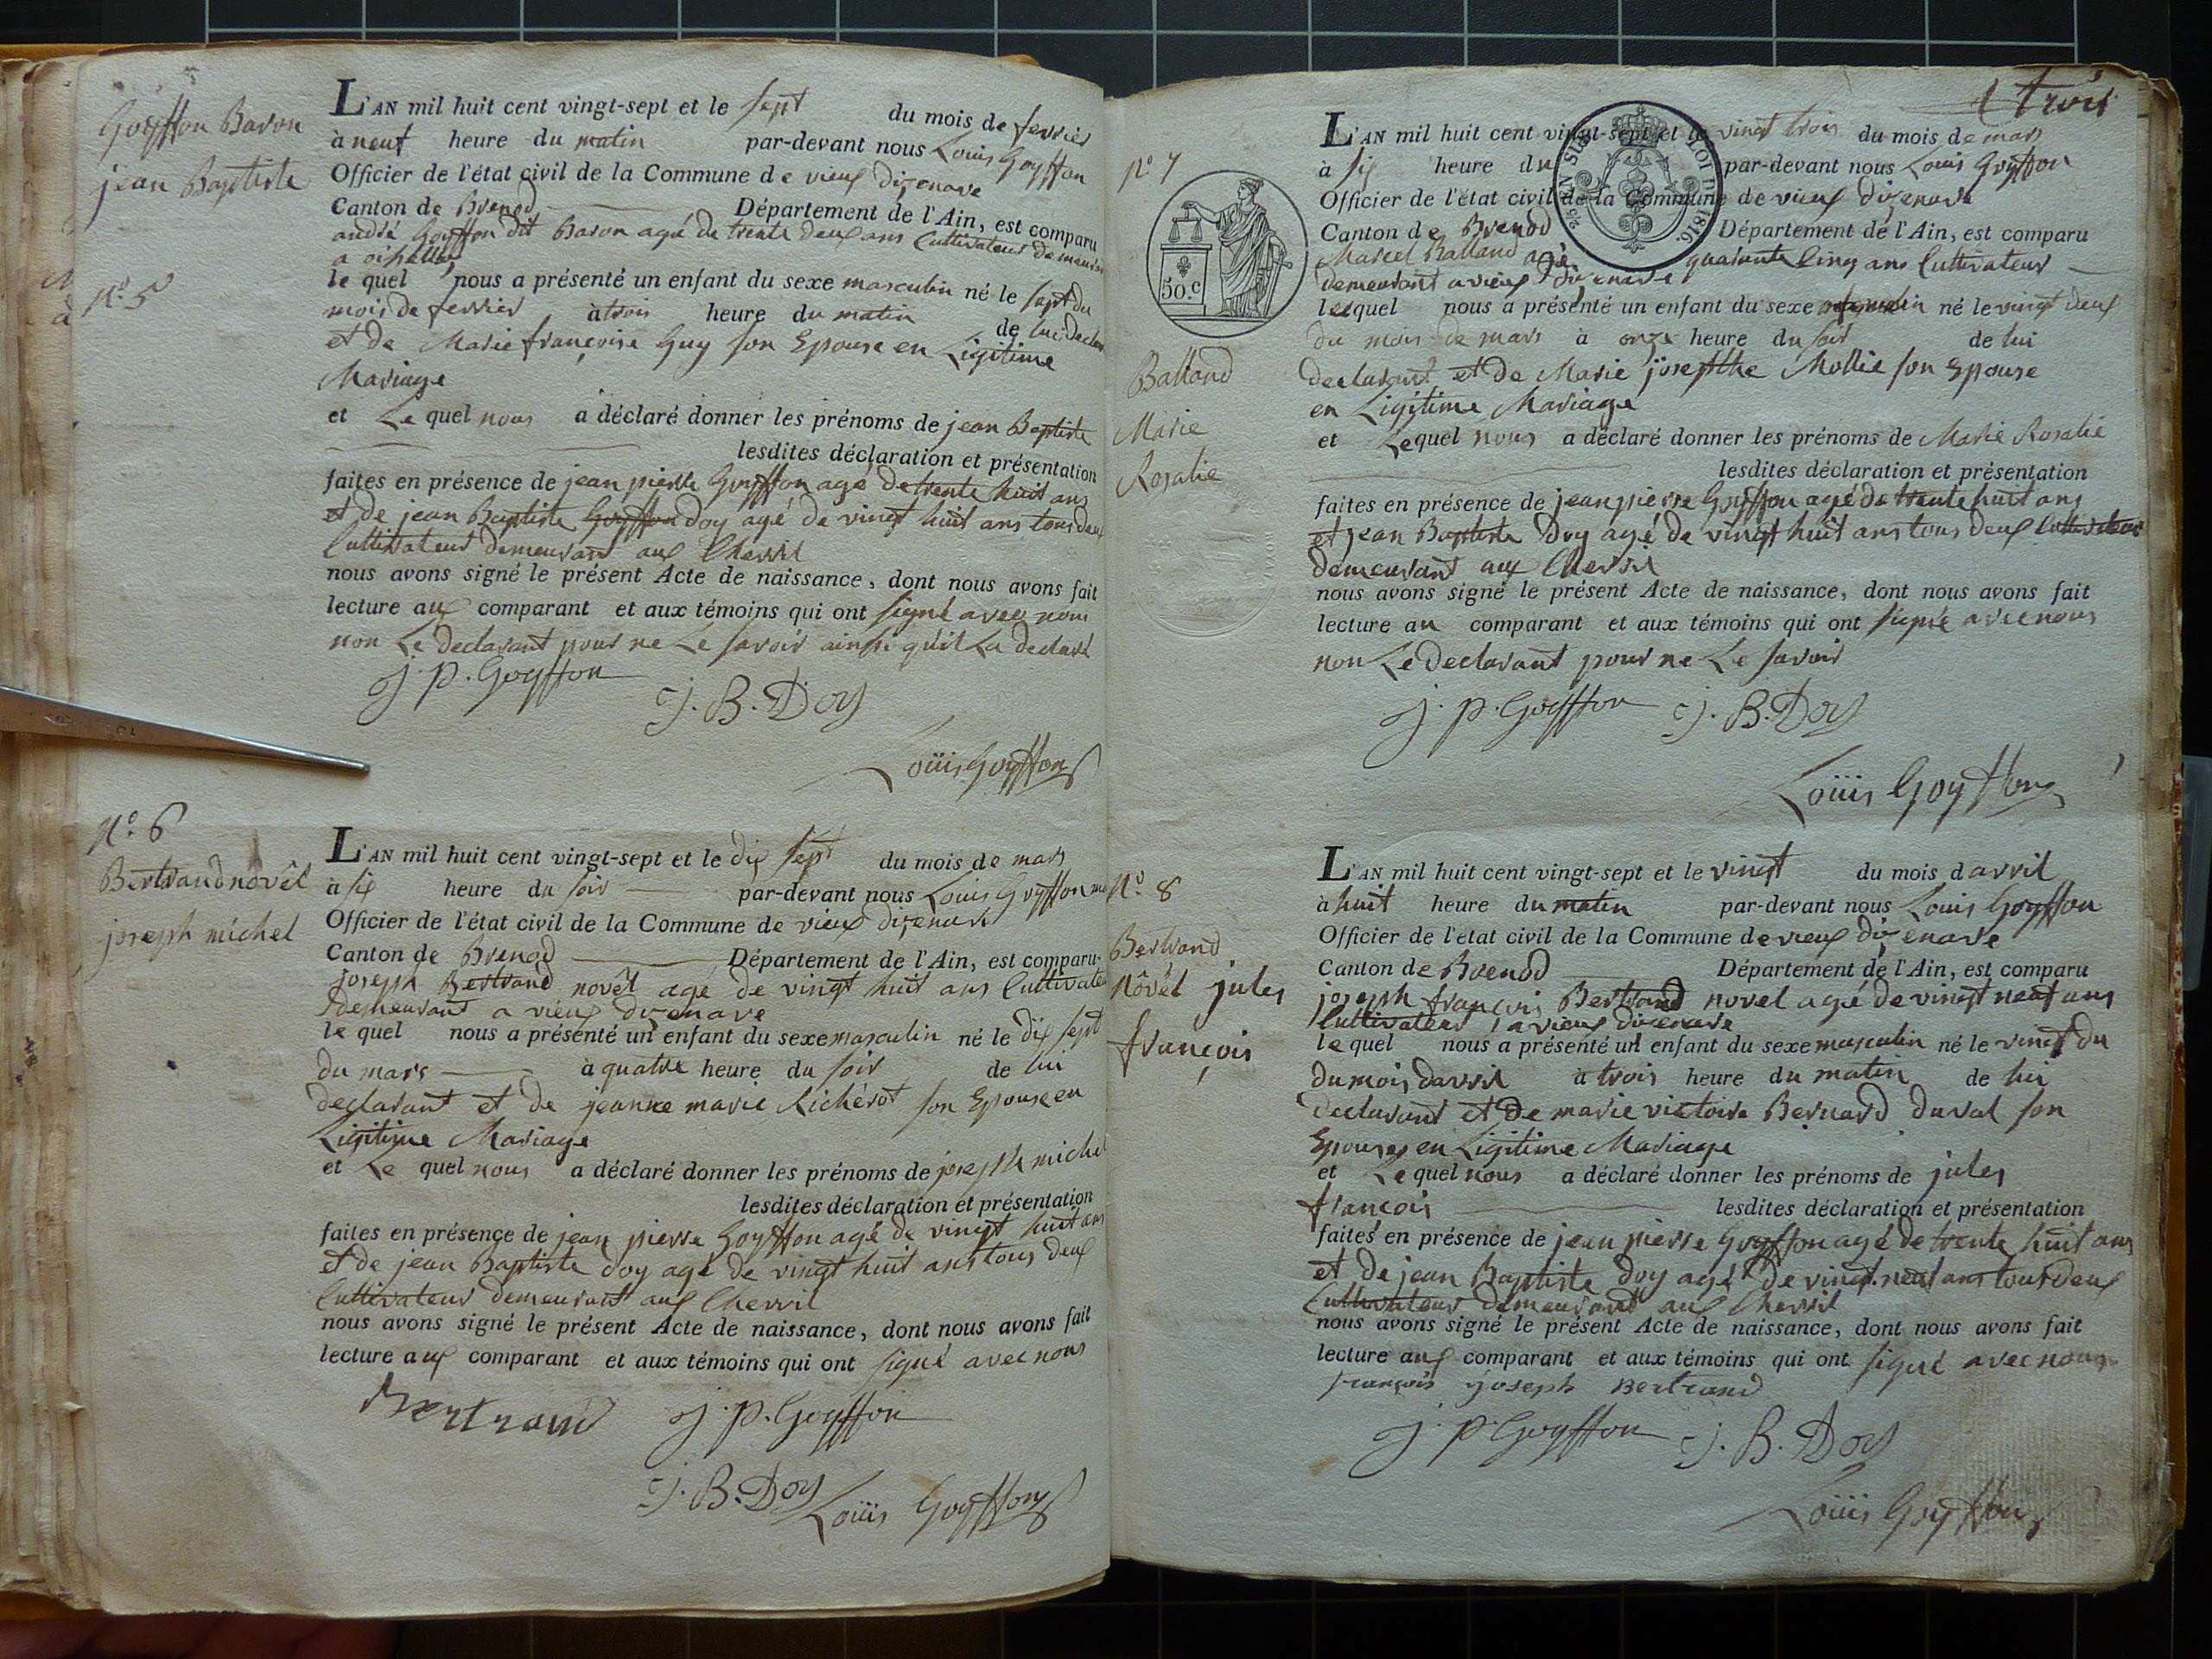 Goyffon Baron
jean Baptiste
N.o 5
L'AN mil huit cent vingt-sept et le sept du mois de fevrier
à neuf heure du matin par-devant nous Louis Goyffon
Officier de l'état civil de la Commune de vieux dizenave
Canton de Brenod Département de l'Ain, est comparu
andré Goyffon dit Baron agé de trente deux ans Cultivateur
le quel nous a présenté un enfant du sexe masculin né le sept du
mois de fevrier à trois heure du matin de lui
et de Marie françoise Guy son Epouse en Ligitime
Mariage
et Le quel nous a déclaré donner les prénoms de jean Baptiste
lesdites déclaration et présentation
faites en présence de jean pierre Goyffon agé de trente huit ans
et de jean Baptiste Goyffon doy agé de vingt huit ans tous deux
Cultivateur demeurant aux Cherril
nous avons signé le présent Acte de naissance, dont nous avons fait
lecture aux comparant et aux témoins qui ont signé avec nous
non Le declarant pour ne Le savoir ainsi quil La declaré
J. P. Goyffon
J. B. Doy
Loüis Goyffon
N.o 6
Bertrand novêl
joseph michel
L'AN mil huit cent vingt-sept et le dix sept du mois de mars
à six heure du soir par-devant nous Louis Goyffon
Officier de l'état civil de la Commune de vieux dizenave
Canton de Brenod Département de l'Ain, est comparu
joseph Bertrand novêl agé de vingt huit ans Cultivateu
demeurant a vieux dizenave
le quel nous a présenté un enfant du sexe masculin né le dix sept
du mars à quatre heure du soir de lui
declarant et de jeanne marie Richérot son Epouse en
Ligitime Mariage
et Le quel nous a déclaré donner les prénoms de joseph michel
lesdites déclaration et présentation
faites en présence de jean pierre Goyffon agé de vingt huit ans
et de jean Baptiste doy agé de vingt huit ans tous deux
Cultivateur demeurant aux Cherril
nous avons signé le présent Acte de naissance, dont nous avons fait
lecture aux comparant et aux témoins qui ont signé avec nous
Bertrand J. P. Goyffon
J. B. Doy Loüis Goyffon
trois
N.o 7
50.c
LOI DE 1816.
Balland
Marie
Rosalie
L'AN mil huit cent vingt-sept et le vingt trois du mois de mars
à six heure du par-devant nous Louis Goyffon
Officier de l'état civil de la Commune de vieux dizenave
Canton de Brenod Département de l'Ain, est comparu
Marcel Balland agé quarante Cinq ans Cultivateur
demeurant a vieux dizenave
lequel nous a présenté un enfant du sexe né le vingt deux
du mois de mars à onze heure du soir de lui
declarant et de Marie josephthe Mollie son Epouse
en Ligitime Mariage
et Le quel nous a déclaré donner les prénoms de Marie Rosalie
lesdites déclaration et présentation
faites en présence de jean pierre Goyffon agé de trente huit ans
et jean Baptiste Doy agé de vingt huit ans tous deux Cultivateur
demeurant aux Cherril
nous avons signé le présent Acte de naissance, dont nous avons fait
lecture au comparant et aux témoins qui ont signé avec nous
non Le declarant pour ne Le savoir
J. P. Goyffon J. B. Doy
Loüis Goyffon
N.o 8
Bertrand
nôvêl jules
françois
L'AN mil huit cent vingt-sept et le vingt du mois davril
à huit heure du matin par-devant nous Louis Goyffon
Officier de l'état civil de la Commune de vieux dizenave
Canton de Brenod Département de l'Ain, est comparu
joseph françois Bertrand novel agé de vingt neuf ans
Cultivateur a vieux dizenave
le quel nous a présenté un enfant du sexe masculin né le vingt du
du mois davril à trois heure du matin de lui
declarant et de marie victoire Bernard duval son
Epouse en Ligitime Mariage
et Le quel nous a déclaré donner les prénoms de jules
françois lesdites déclaration et présentation
faites en présence de jean pierre Goyffon agé de trente huit ans
et de jean Baptiste doy agé de vingt neuf ans tous deux
Cultivateur demeurant aux Cherril
nous avons signé le présent Acte de naissance, dont nous avons fait
lecture aux comparant et aux témoins qui ont signé avec nous
françois joseph Bertrand
J. P Goyffon J. B. Doy
Loüis Goyffon